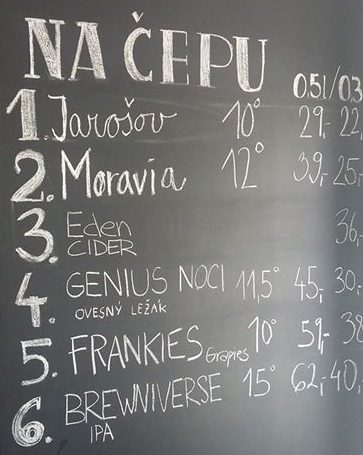 NA ČEPU
0.5l/0.3
1. Jarošov 10° 29,- 22,
2. Moravia 12° 39,- 25,-
3. Eden 36,-
CIDER
4. GENIUS NOCI 11,5° 45,- 30,-
OVESNÝ LEŽÁK
5. FRANKIES Grapies 10° 59,- 38
6. BREWNIVERSE 15° 62,- 40,
IPA